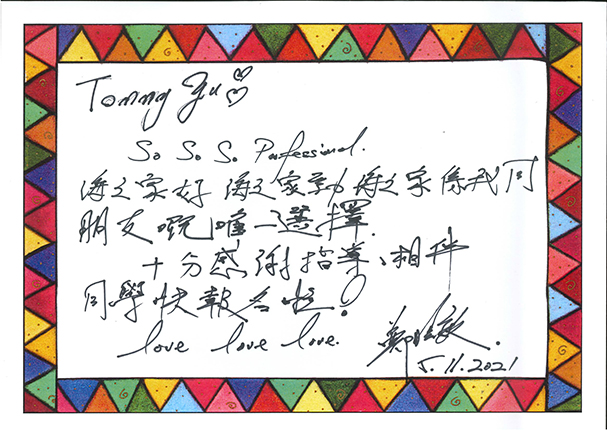 Tommy Yu
So So So Professional.
海之家好 海之家勁 海之家係我同
朋友嘅唯一選擇.
十分感謝指導、相伴
同學快報名啦!
love love love.
鄭
5.11.2021